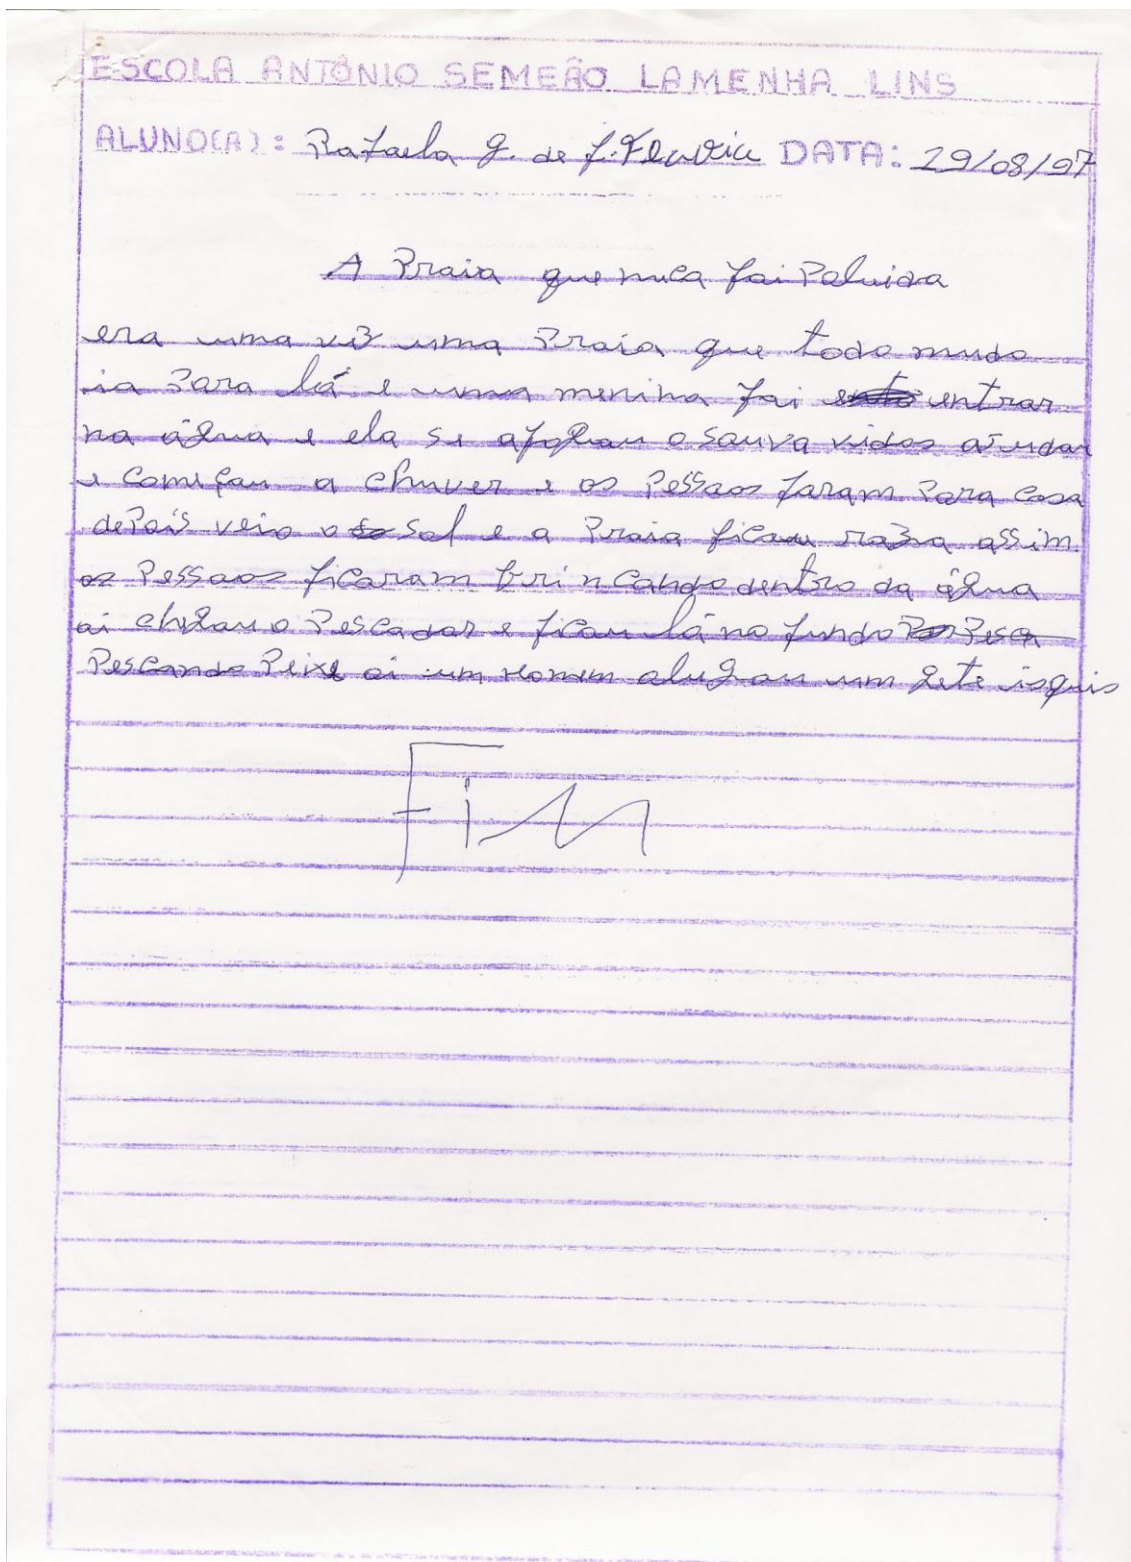 ESCOLA ANTÔNIO SEMEÃO LAMENHA LINS
ALUNO(A): Rafaela g. de f. DATA: 29/08/97
A Praia que nuca foi Poluida
era uma vez uma Praia que todo mudo
ia Para lá e uma menina foi entrar
na água e ela se afogou o sauva vidas ajudar
e começou a chuver e as Pessoas foram Para casa
dePois veio o sol e a Praia ficou raza assim
as Pessoas ficaram brincando dentro da água
ai chegou o Pescador e ficou lá no fundo
Pescando Peixe ai um homem alugou um gete isquis
Fim